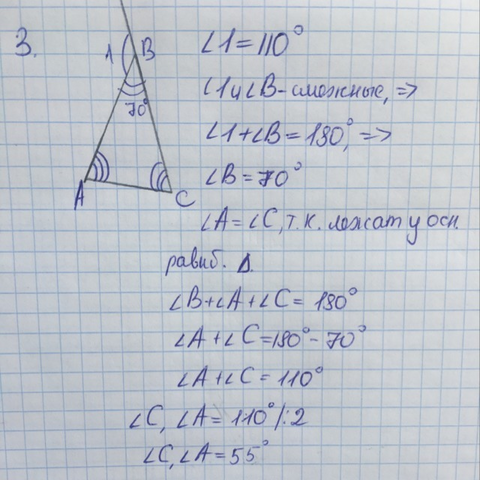 3.
1 B
70°
A
C
∠1 = 110°
∠1 и ∠B - смежные, =>
∠1 + ∠B = 180°, =>
∠B = 70°
∠A = ∠C, т.к. лежат у осн.
равнб. Δ.
∠B + ∠A + ∠C = 180°
∠A + ∠C = 180° - 70°
∠A + ∠C = 110°
∠C, ∠A = 110° /: 2
∠C, ∠A = 55°